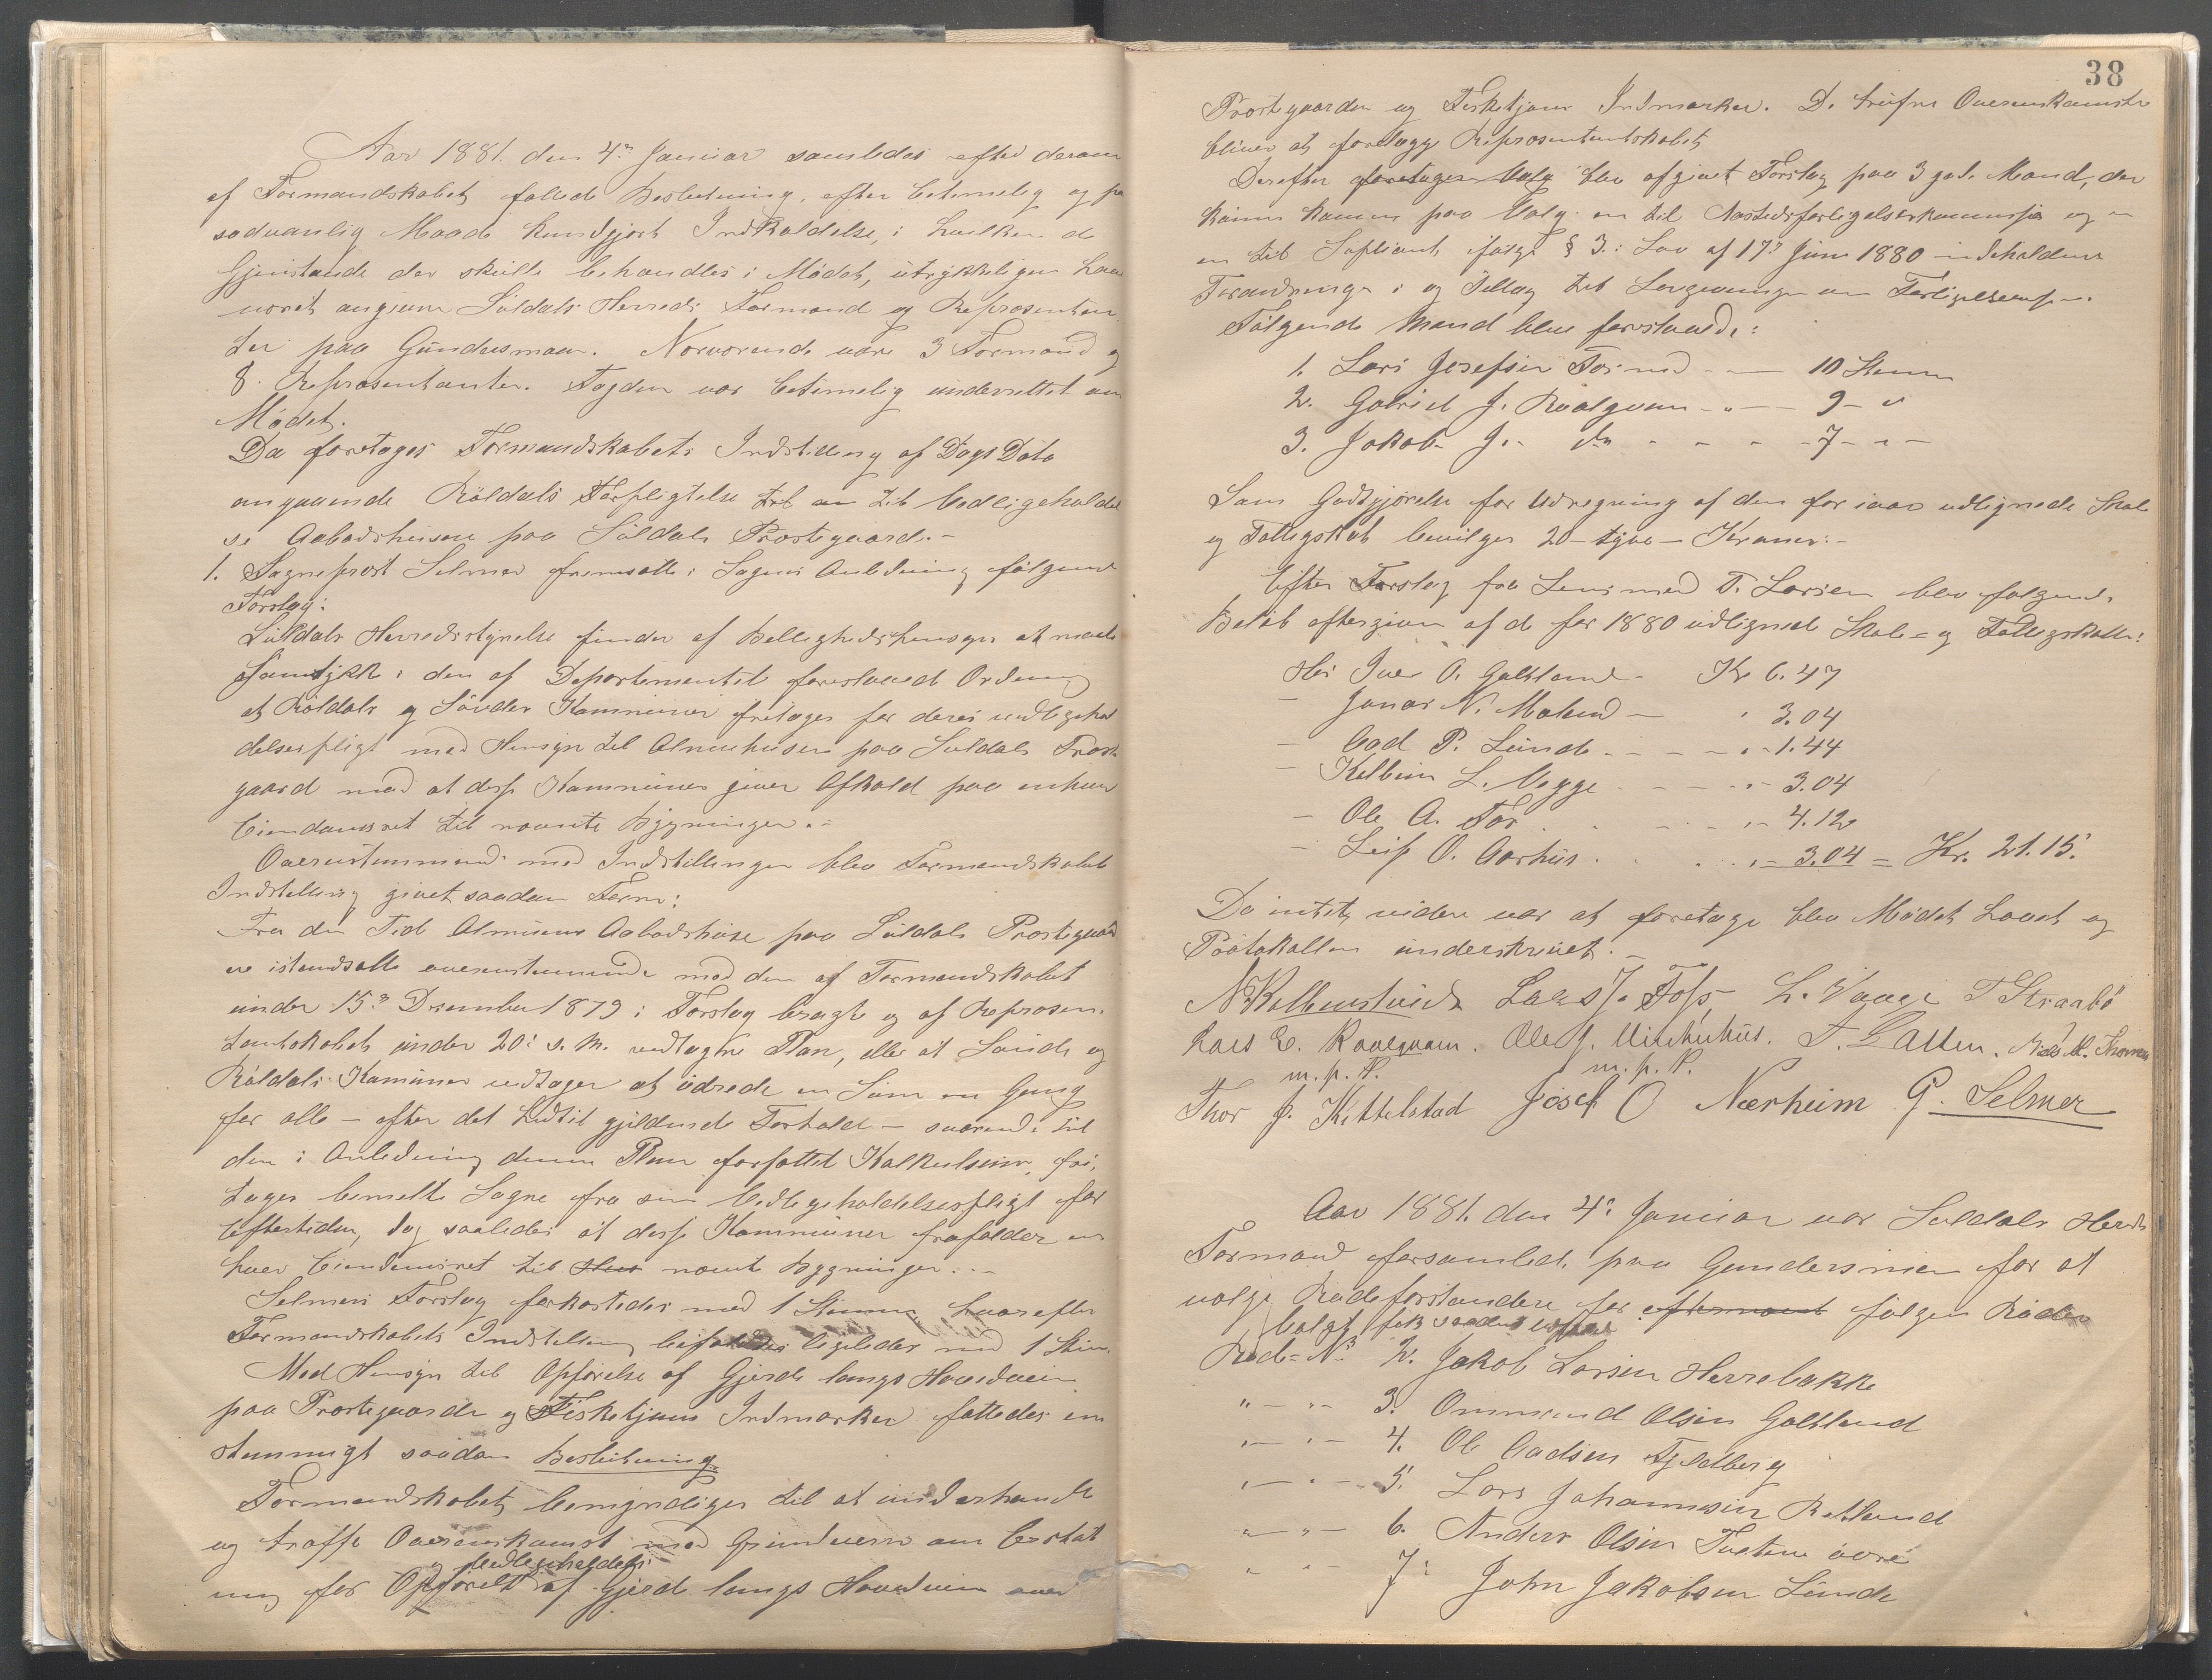 Aar 1881. den 4de Januar samledes efter derom
af Formandskabet fattede Beslutning, efter betimelig og paa
sedvanlig Maade kundgjort Indkaldelse, i hvilken de
Gjenstande der skulle behandles i Mødet, udtrykkeligen have
været angivne Suldals Herreds Formænd og Repræsentan-
ter paa Gundersmoen. Nærværende vare 3 Formænd og
8 Repræsentanter. Fogden var betimelig underrettet om
Mødet.
Da foretages Formandskabets Indstilling af Dags Dato
angaaende Røldals Forpligtelse til vedligeholdel
se Aabodshusene paa Suldals Præstegaard.-
1. Sognepræst Selmer fremsatte i Sagens Anledning følgende
Forslag:
Suldals Herredsstyrelse finder af Billighedshensyn at maatte
samtykke i den af Departementet foreslaaede Ordning
at Røldals og Sauden Kommuner fritages for deres vedligehol
delsespligt med Hensyn til Almuehusene paa Suldals Præste
gaard mod at disse Kommuner giver Afkald paa enhver
Eiendomsret til nævnte Bygninger.-
Overensstemmende med Indstillingen blev Formandskabets
Indstilling givet saadan Form:
Fra den Tid Almuens Aabodshuse paa Suldals Præstegaard
ere istandsatte overensstemmende med den af Formandskabet
under 15de December 1879 i Forslag bragte og af Repræsen-
tantskabet under 20de s. M. vedtagne Plan, eller at Saude og
Røldals Kommuner vedtager at udrede en Sum en Gang
for alle - efter det hidtil gjeldende Forhold - svarende til
den i Anledning denne Plan forfattet Kalkulation, fri-
tages bemeldte Sogne fra sin Vedligeholdelsespligt for
Eftertiden, dog saaledes at disse Kommuner frafalder en
hver Eiendomsret til nævnte Bygninger.-
Selmers Forslag forkastedes med 1 Stemme, hvorefter
Formandskabets Indstilling bifaldtes ligeledes med 1 Stem.
Med Hensyn til Opførelse af Gjerde langs Hovedveien
paa Præstegaarden og Fisketjøns Indmarker fattedes een
stemmigt saadan Beslutning
Formandskabet bemyndiges til at underhandle
og træffe Overenskomst med Grundeierne om Erstat
og vedligeholdelse
ning for Opførelse af Gjerde langs Hovedveien over
38
Præstegaarden og Fisketjøns Indmarker. De trufne Overenskomster
bliver at forelægge Repræsentantskabet
Derefter foretages Valg blev afgivet Forslag paa 3 gode Mænd, der
kunne komme paa Valg en til Næstedsforligelseskommissær og
en til Supleant ifølge § 3 i Lov af 17de Juni 1880 indeholdende
Forandringer i og Tillæg til Lovgivningen om Forligelsesv.
Følgende Mænd bleve foreslaaede:
1. Lars Josefsen Fos med - - 10 Stemmer
2. Gabriel J. Roalqvam - " - 9 - "
3. Jakob J. - do - - - - 7 - " -
Som Godtgjørelse for Udregning af den for iaar udlignede Skole
og Fattigskat bevilges 20 - tyve - Kroner.-
Efter Forslag fra Lensmand T. Larsen blev følgende
Beløb eftergivne af de for 1880 udlignede Skole- og Fattigskatter:
Hos Iver O. Galtland - Kr 6.47
- Jonas N. Moland - " 3.04
- Aad P. Lunde - - - " - 1.44
- Kolbein L. Vegge - - - " - 3.04
- Ole A. Før - - " - 4.12
- Leif O. Aarhus - - " - 3.04 = Kr. 21.15.
Da intet videre var at foretage blev Mødet hævet og
Protokollen underskrevet.-
N Kolbenstvedt Lars J. Foss L. Vaage T Straabø
Lars E. Roalqvam. Ole J. T. Laxen. Niels M.
m. p. P. m. p. P.
Thor J. Kittelstad Josef O Nærheim G. Selmer
Aar 1881. den 4de Januar var Suldals Herreds
Formænd forsamlede paa Gundersmoen for at
vælge Rodeforstandere for efternævnte følgende Roder
Valget fik saadant udfald
Rode No 2. Jakob Larsen Herrebakke
" - " - 3. Ommund Olsen Galtland
" - " - 4. Ole Aadsen Fjeldberg
" - " - 5. Lars Johannesen Rekland
" - " - 6. Anders Olsen Tveten øvre
" " 7. John Jakobsen Lunde